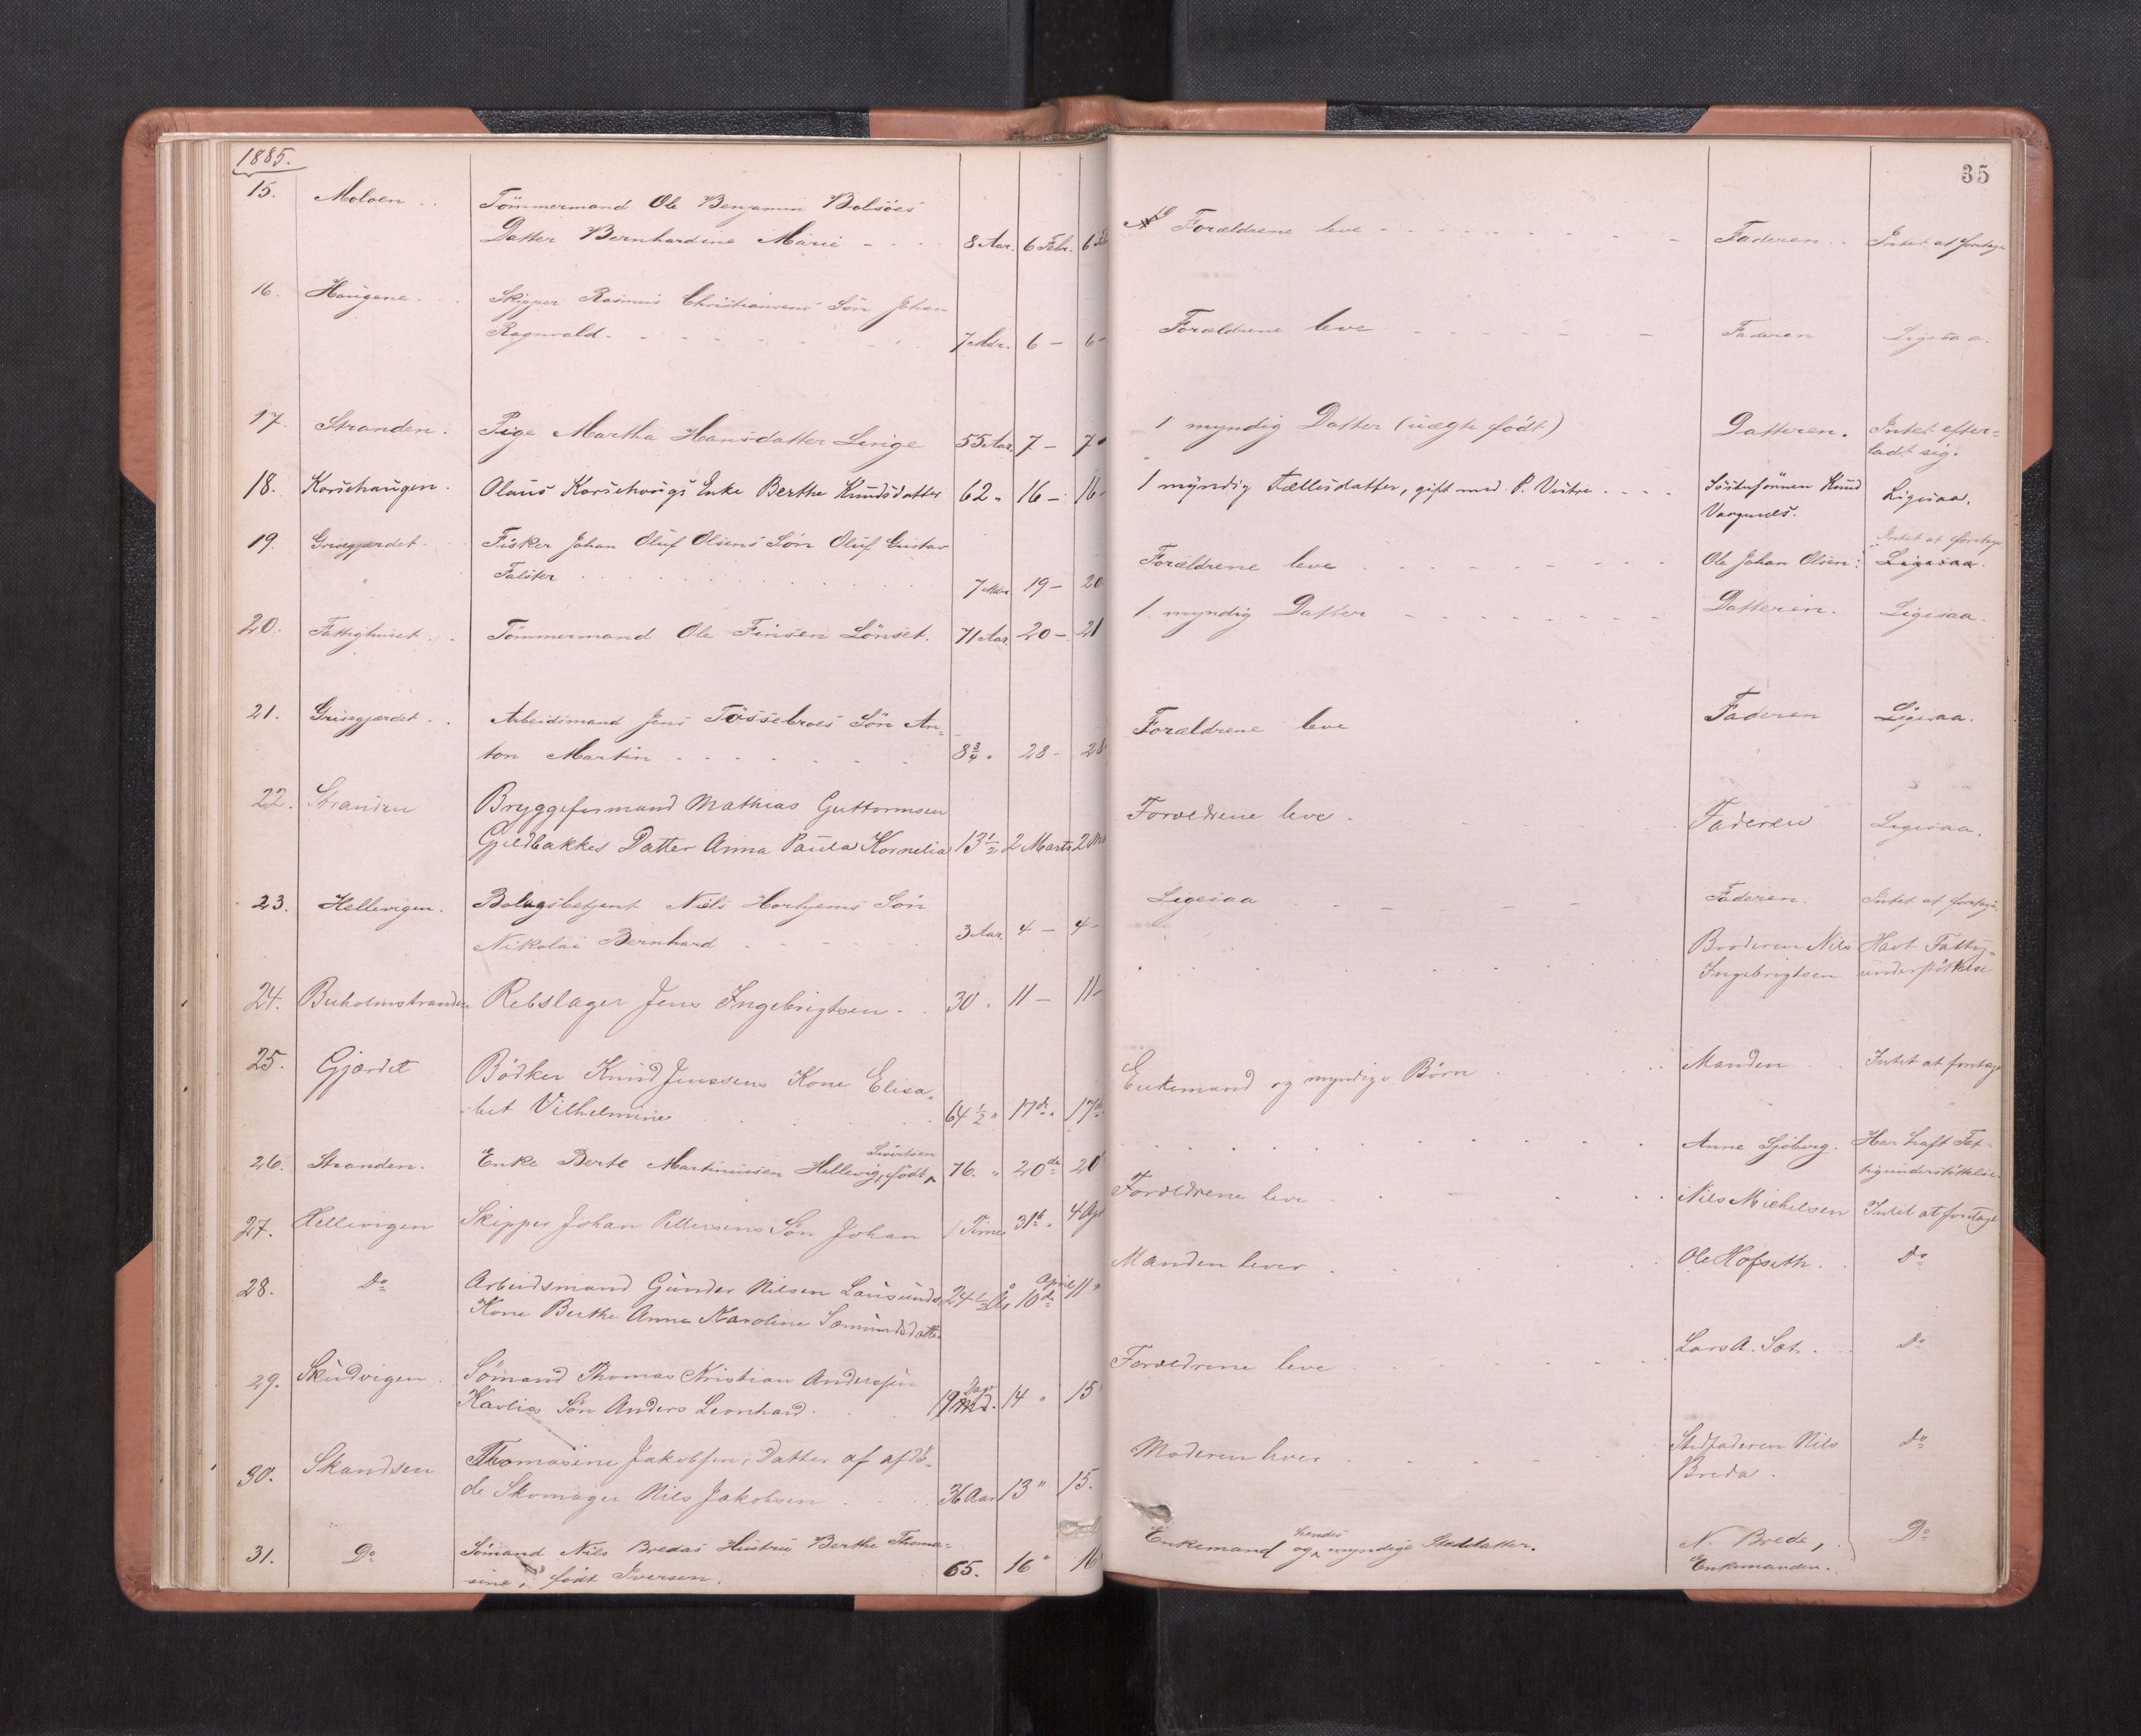 1885.
35
15. Moloen . . Tömmermand Ole Benjamin Bolsöes
Datter Bernhardine Marie - - - 8 Aar. 6 Febr. 6 Feb
Forældrene leve - - - Faderen . . Intet at foretage
16. Haugene . . Skipper Rasmus Christiansens Sön Johan
Ragnvald - - - 7 Mdr. 6 - 6 -
Forældrene leve - - - Faderen Ligesaa.
17. Stranden . Pige Martha Hansdatter Linge 55 Aar. 7 - 7
1 myndig Datter (uægte født) Datteren. Intet efter=
ladt sig.
18. Korschaugen . Olaus Korschougs Enke Berthe Knudsdatter 62 " 16 - 16 -
1 myndig Fællesdatter, gift med P. . . . . Söstersönnen Knud Ligesaa.
19. Grisegjærdet . Fisker Johan Oluf Olsens Sön Oluf Gustav
Falster . . . 7 Mdr. 19 - 20
Forældrene leve . . . Ole Johan Olsen: Intet at foretage
Ligesaa.
20. Fattighuset . . Tömmermand Ole Finsen Lönset. 71 Aar. 20 - 21
1 myndig Datter - - - Datteren. Ligesaa.
21. Grisegjærdet . . Arbeidsmand Jens Tössebroes Sön An=
ton Martin - - - 8 3/4 " 28 - 28
Forældrene leve Faderen Ligesaa.
22. Stranden Bryggeformand Mathias Guttormsen
Gjeldbakkes Datter Anna Paula Kornelia 13 1/2 2 Marts 2 Ma
Forældrene leve . Faderen Ligesaa.
23. Hellevigen . Bolagsbetjent Nils Horhjems Sön
Nikolai Bernhard . - - 3 Aar. 4 - 4 -
Ligesaa - - - Faderen. Intet at foretage
24. Buholmstranden Rebslager Jens Ingebrigtsen - . 30 . 11 - 11 -
. . . Broderen Nils Havt Fattig=
Ingebrigtsen understöttelse
25. Gjærdet Bödker Knud Jenssens Kone Elisa=
bet Vilhelmine . . . 64 1/2 " 17de. 17de
Enkemand og myndige Börn . . . Manden . . Intet at foretage
26. Stranden. Enke Berte Martinusen Hellevig, född Sivertsen 76. " 20de 20
. . . Anne Sjöberg. Har haft Fat-
tigunderstöttelse.
27. Hellevigen Skipper Johan Pettersens Sön Johan 1 Time 31te " 4 Apr
Forældrene leve . . . Nils Michelsen Intet at foretage
28. Do Arbeidsmand Gunder Nilsen Lausunds 24 1/2 År April 10de 11 "
Kone Berthe Anna Karoline Sæmundsdatter
Manden lever . . . Ole Hofseth . Do
29. Skudvigen . Sömand Thomas Kristian Andersen
Kavlies Sön Anders Leonhard . 19 Dage 14 " 15
Forældrene leve . . . Lars A. Sæt. . Do
30. Skandsen Thomasine Jakobsen, Datter af afdö=
de Skomager Nils Jakobsen . . . 36 Aar 13 " 15.
Moderen lever . . . Stedfaderen Nils Do
Breda .
31. Do Sömand Nils Bredas Hustru Berthe Thoma=
sine, født Iversen. 65. 16 " 16
Enkemand og hendes myndige Steddatter. N. Brede, Do
Enkemanden.